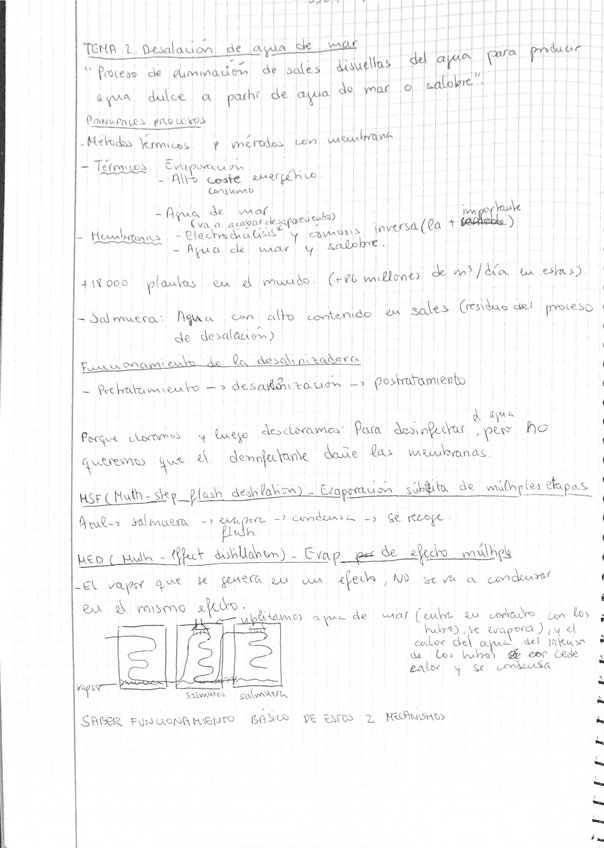 TEMA 2. Desalación de agua de mar
"Proceso de eliminación de sales disueltas del agua para producir
agua dulce a partir de agua de mar o salobre".
PRINCIPALES PROCESOS
- Métodos térmicos y métodos con membrana
- Térmicos: Evaporación
- Alto coste energético
consumo
- Agua de mar
(va a acabar desapareciendo)
- Membranas: - Electrodiálisis y ósmosis inversa (la + importante)
- Agua de mar y salobre.
+18000 plantas en el mundo. (+86 millones de m³/día en estas)
- Salmuera: Agua con alto contenido en sales (residuo del proceso
de desalación)
Funcionamiento de la desalinizadora
- Pretratamiento -> desalinización -> postratamiento
Porque cloramos y luego descloramos: Para desinfectar el agua, pero no
queremos que el desinfectante dañe las membranas.
MSF (Multi-step flash destilation) - Evaporación súbita de múltiples etapas
Azul -> salmuera -> evapora -> condensa -> se recoge.
flash
MED (Multi-effect distillation) - Evap de efecto múltiple
- El vapor que se genera en un efecto, NO se va a condensar
en el mismo efecto.
utilitamos agua de mar (entra en contacto con los
tubos), se evapora), y el
calor del agua del interior
de los tubos cede
calor y se condensa
vapor
salmuera salmuera
SABER FUNCIONAMIENTO BÁSICO DE ESTOS 2 MECANISMOS